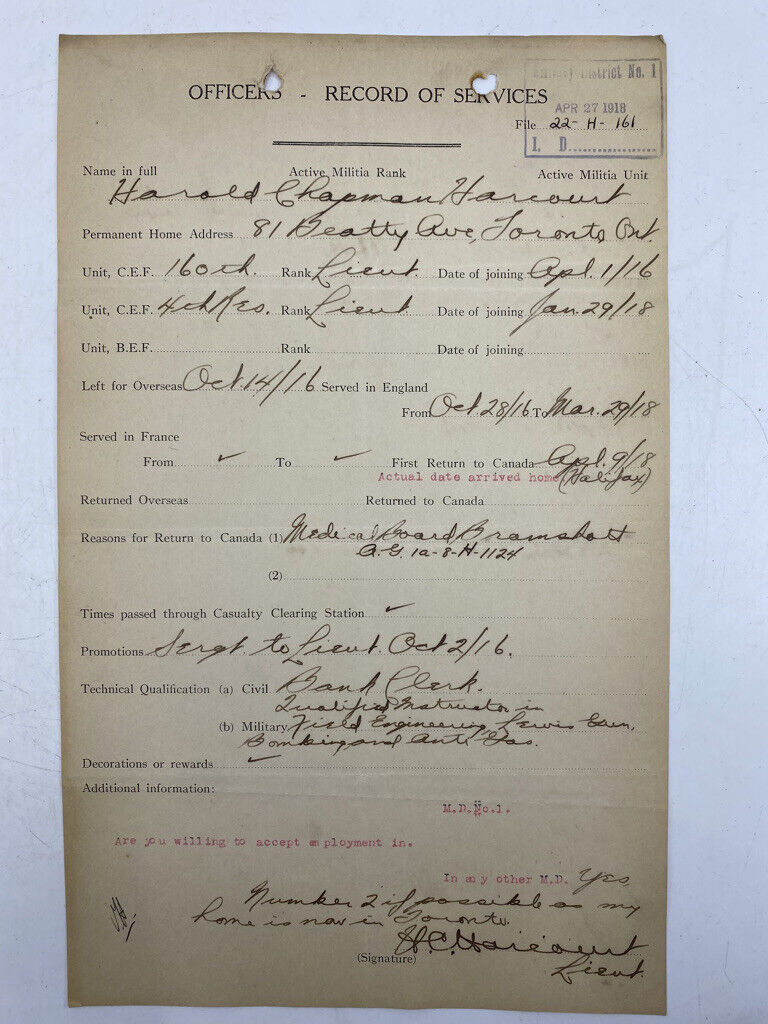 Military District No. 1
OFFICERS - RECORD OF SERVICES
APR 27 1918
File 22-H-161
I. D.
Name in full Active Militia Rank Active Militia Unit
Harold Chapman Harcourt
Permanent Home Address 81 Beatty Ave, Toronto Ont.
Unit, C.E.F. 160th. Rank Lieut. Date of joining Apl. 1/16
Unit, C.E.F. 4th Res. Rank Lieut Date of joining Jan. 29/18
Unit, B.E.F. Rank Date of joining
Left for Overseas Oct. 14/16 Served in England
From Oct 28/16 To Mar. 29/18
Served in France
From ✓ To ✓ First Return to Canada Apl. 9/18
Actual date arrived home (Halifax)
Returned Overseas Returned to Canada
Reasons for Return to Canada (1) Medical Board Bramshott
A.G. 1a-8-H-1124
(2)
Times passed through Casualty Clearing Station ✓
Promotions Sergt. to Lieut. Oct 2/16.
Technical Qualification (a) Civil Bank Clerk.
Qualified Instructor in
(b) Military Field Engineering, Lewis Gun,
Bombing and Anti Gas.
Decorations or rewards ✓
Additional information:
M.D.No.1.
Are you willing to accept employment in.
In any other M.D. Yes.
Number 2 if possible as my
home is now in Toronto.
H.C. Harcourt
(Signature) Lieut.